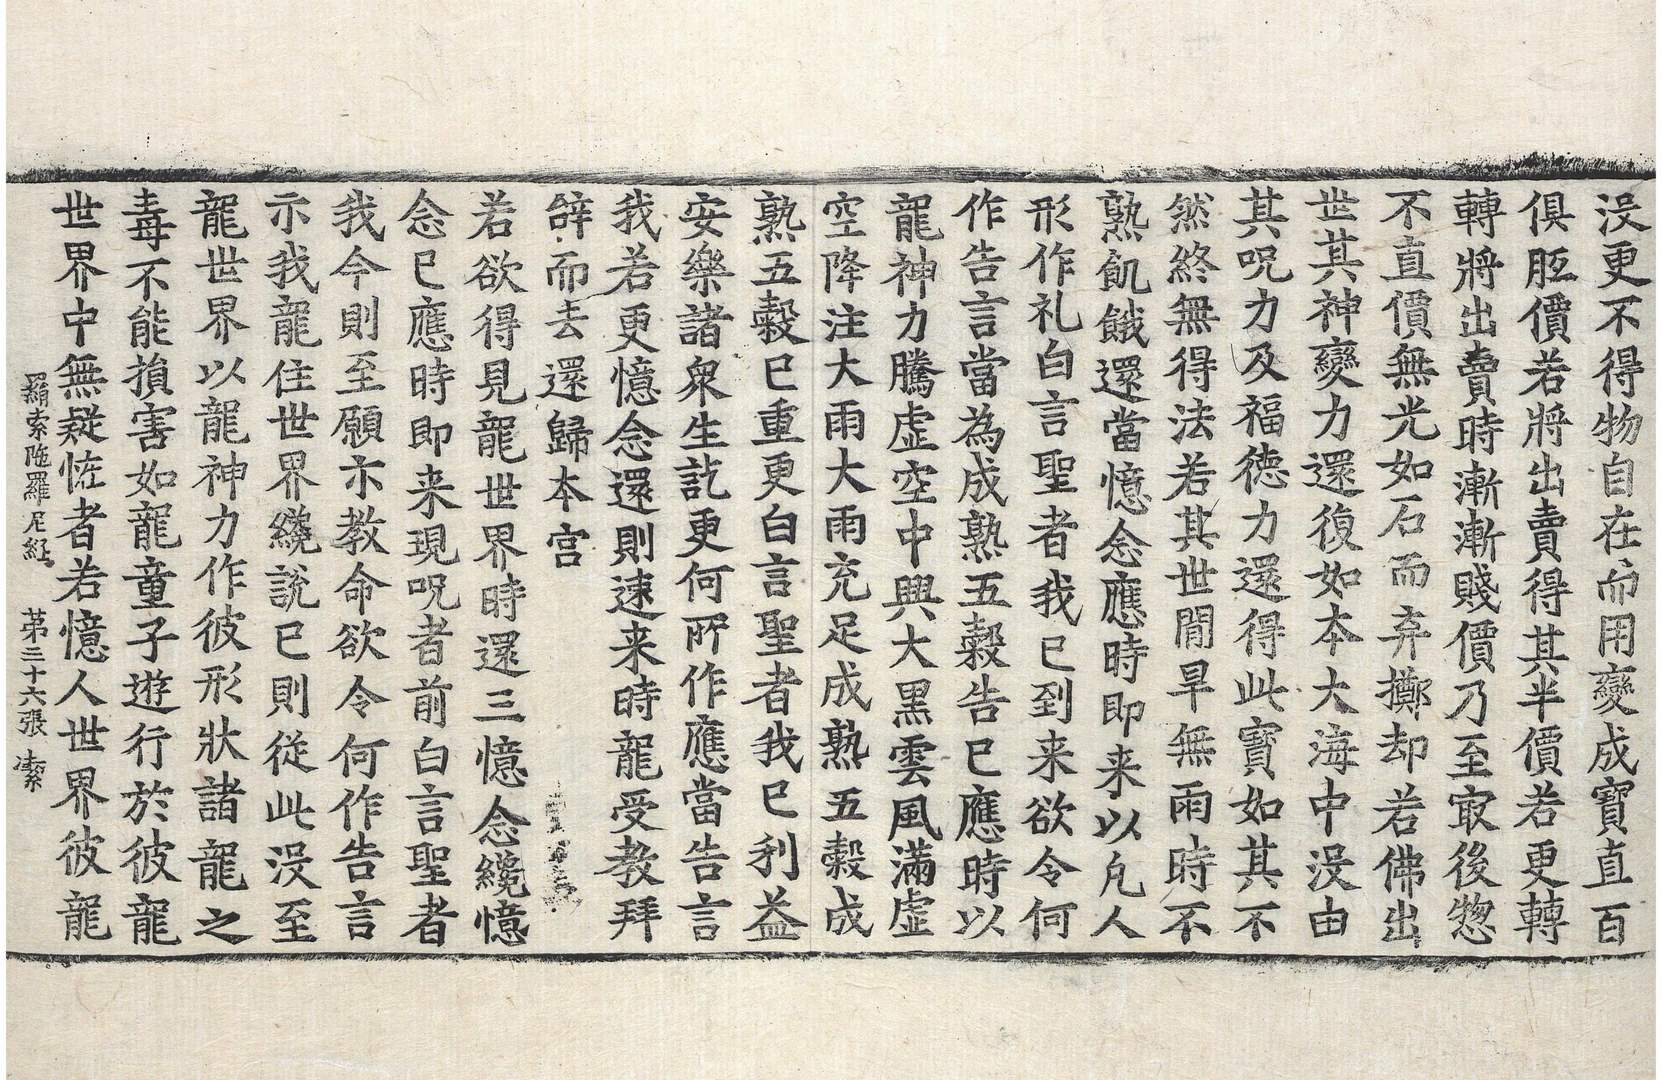 没更不得物自在而用變成寶直百
俱胝價若將出賣得其半價若更轉
轉將出賣時漸漸賤價乃至㝡後惣
不直價無光如石而弃擲却若佛出
世其神變力還復如本大海中没由
其呪力及福德力還得此寶如其不
然終無得法若其世間旱無雨時不
熟飢餓還當憶念應時即来以凡人
形作礼白言聖者我已到来欲令何
作告言當為成熟五糓告已應時以
龍神力騰虛空中興大黑雲風滿虛
空降注大雨大雨充足成熟五糓成
熟五糓已重更白言聖者我已利益
安樂諸衆生訖更何所作應當告言
我若更憶念還則速来時龍受教拜
辝而去還歸本宫
若欲得見龍世界時還三憶念纔憶
念已應時即来現呪者前白言聖者
我今則至願亦教命欲令何作告言
示我龍住世界纔說已則從此没至
龍世界以龍神力作彼形狀諸龍之
毒不能損害如龍童子遊行於彼龍
世界中無疑恠者若憶人世界彼龍
羂索陁羅尼経 苐三十六張 潔